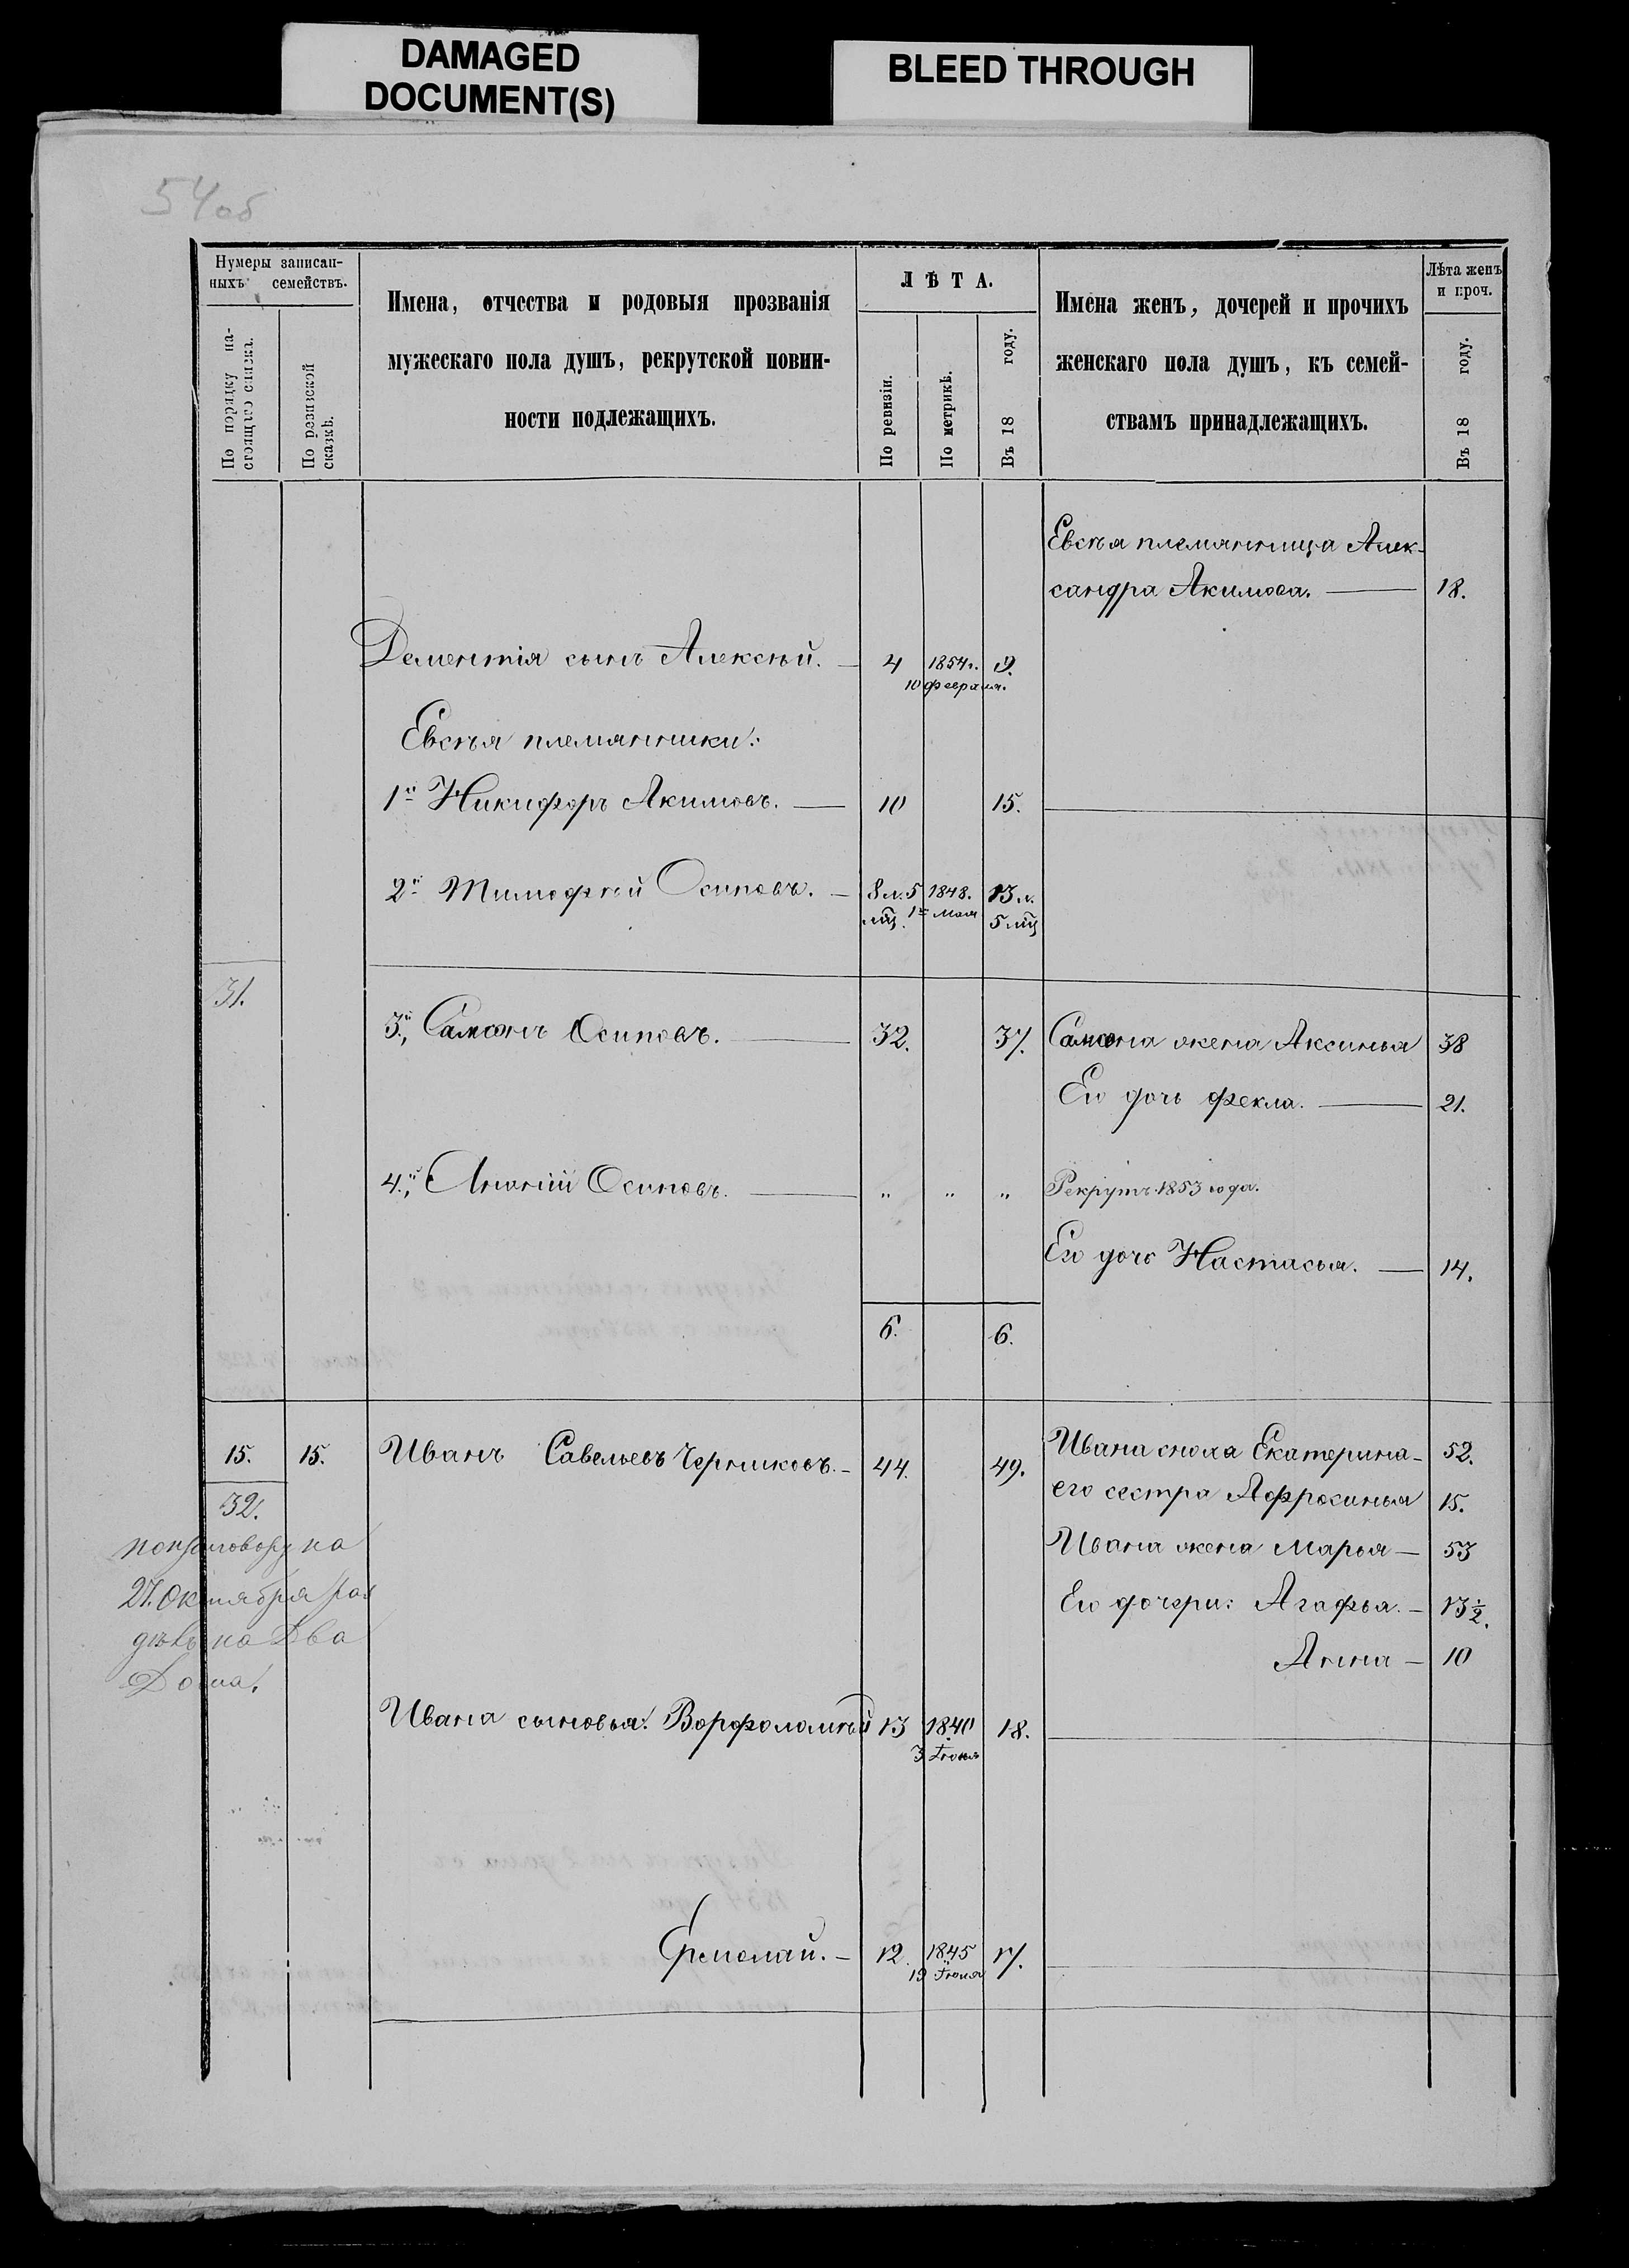 DAMAGED
DOCUMENT(S)
BLEED THROUGH
54 об
Нумеры записан-
ныхъ семействъ.
По порядку на-
стоящаго списка.
По ревизской
сказкѣ.
Имена, отчества и родовыя прозванія
мужескаго пола душъ, рекрутской повин-
ности подлежащихъ.
ЛѢТА.
По ревизіи.
По метрикѣ.
Въ 18 году.
Имена женъ, дочерей и прочихъ
женскаго пола душъ, къ семей-
ствамъ принадлежащихъ.
Лѣта женъ
и проч.
Въ 18 году.
Евсѣя племянница Алек-
сандра Акимова. — 18.
Дементія сынъ Алексѣй. — 4 1854 г. 9.
10 февраля.
Евсѣя племянники:
1й Никифоръ Акимовъ. — 10 15.
2й Тимофѣй Осиповъ. — 8 л. 5 1848. 13 л.
мц. 1го мая 5 мц
31.
3й, Самсонъ Осиповъ. — 32. 37. Самсона жена Аксинья 38
Его дочь Фекла. — 21.
4й, Осиповъ. — " " " Рекрутъ 1853 года.
Его дочь Настасья. — 14.
6. 6.
15. 15. Иванъ Савельевъ Чернышковъ. — 44. 49. Ивана сноха Екатерина — 52.
его сестра Афросинья 15.
32.
Ивана жена Марья — 53
на
27. Октября раз
дѣлъ на Два
Дома.
Его дочери: Агафья. — 13½.
Анна — 10
Ивана сыновья: Ворфоломѣй 13 1840 18.
3 Іюня
Ермолай. — 12 1845 17.
19 Іюня